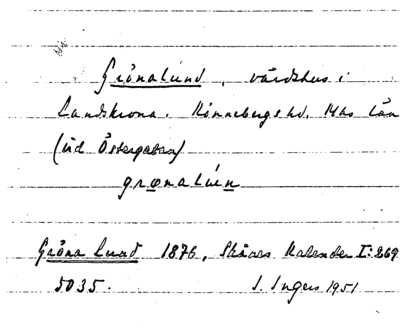 Grönalund, värdshus i
Landskrona. Rönnebergs hd, Mhs län
(vid Östergatan)
grønalúnn
Gröna Lund 1876, Skånes Kalender I: 269
5035. I. Ingers 1951